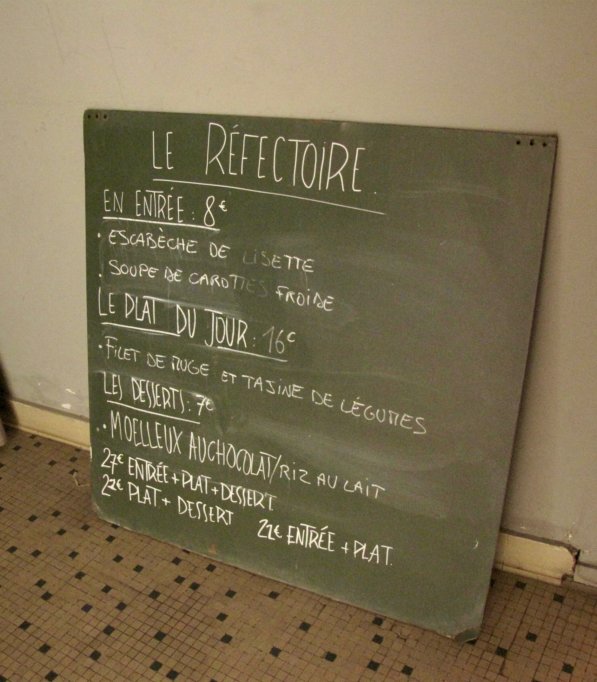 LE RÉFECTOIRE.
EN ENTRÉE : 8€
• ESCABÈCHE DE LISETTE
• SOUPE DE CAROTTES FROIDE
LE PLAT DU JOUR : 16€
• FILET DE MUGE ET TAJINE DE LÉGUMES
LES DESSERTS : 7€
• MOELLEUX AU CHOCOLAT/RIZ AU LAIT
27€ ENTRÉE + PLAT + DESSERT
22€ PLAT + DESSERT 22€ ENTRÉE + PLAT.